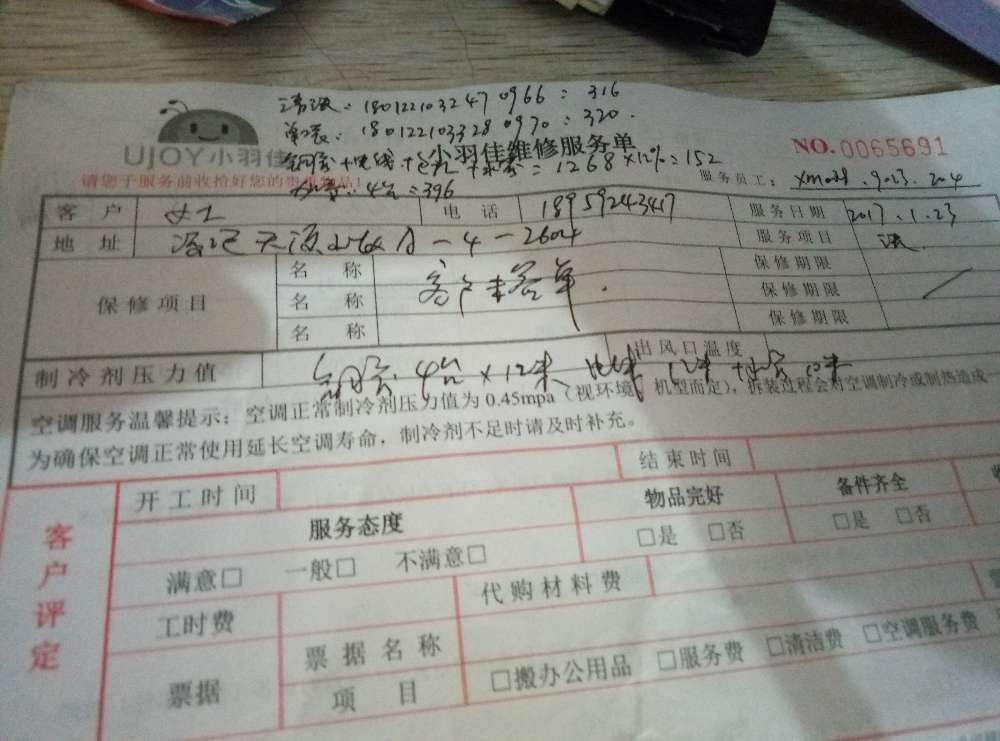 清洗: 180122103247 0966: 316
180122103328 0970: 320.
UJOY小羽佳维修服务单
NO.0065691
铜管+电线+ = 1268×12%=152
请您于服务前收拾好您的贵重物品!
4台=396
服务员工: 9023. 204
客户 电话 18959243417 服务日期 2017.1.23
地址 -4-2604 服务项目
保修项目 名称 客户未签单. 保修期限 /
名称 保修期限
名称 保修期限
制冷剂压力值 铜管4台×12米 12米 出风口温度
空调服务温馨提示:空调正常制冷剂压力值为0.45mpa(视环境、机型而定),拆装过程会对空调制冷或制热造成一
为确保空调正常使用延长空调寿命,制冷剂不足时请及时补充。
客户评定
开工时间 结束时间
服务态度 物品完好 备件齐全
满意□ 一般□ 不满意□ □是 □否 □是 □否
工时费 代购材料费
票据 票据名称
项目 □搬办公用品 □服务费 □清洁费 □空调服务费